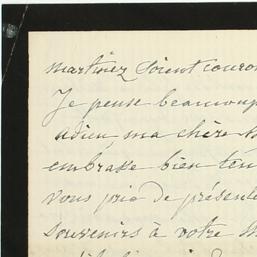 martinez soient couron
Je pense beaucoup
adieu ma chère
embrasse bien ten
vous prie de présente
souvenirs à votre